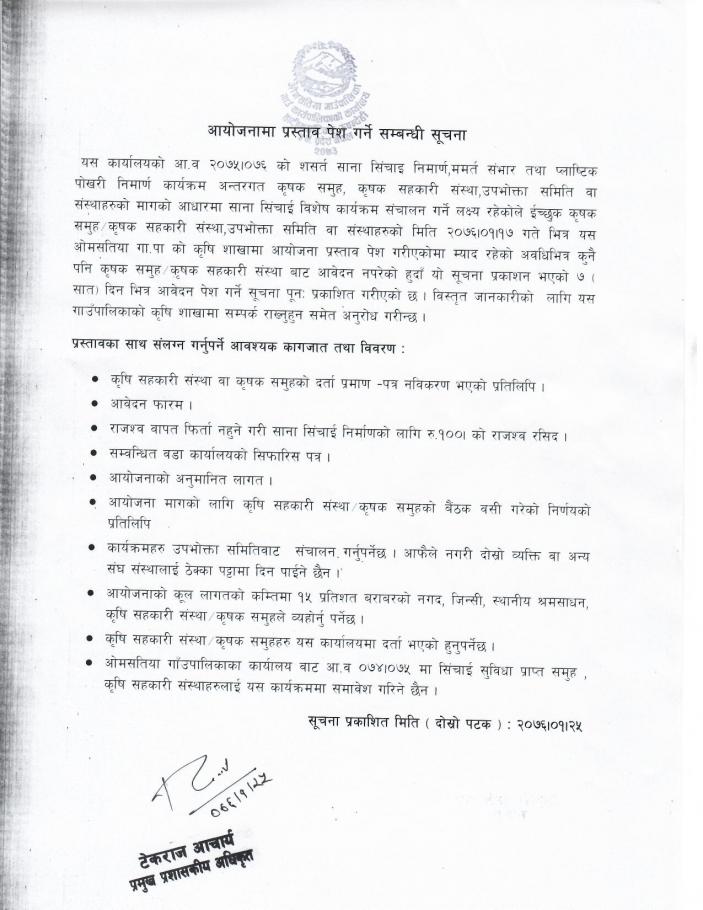 आयोजनामा प्रस्ताव पेश गर्ने सम्बन्धी सूचना
यस कार्यालयको आ.व २०७५।०७६ को शसर्त साना सिंचाइ निमार्ण,ममर्त संभार तथा प्लाष्टिक
पोखरी निमार्ण कार्यक्रम अन्तरगत कृषक समुह, कृषक सहकारी संस्था,उपभोक्ता समिति वा
संस्थाहरुको मागको आधारमा साना सिंचाई विशेष कार्यक्रम संचालन गर्ने लक्ष्य रहेकोले ईच्छुक कृषक
समुह/कृषक सहकारी संस्था,उपभोक्ता समिति वा संस्थाहरुको मिति २०७६।०१।१७ गते भित्र यस
ओमसतिया गा.पा को कृषि शाखामा आयोजना प्रस्ताव पेश गरीएकोमा म्याद रहेको अवधिभित्र कुनै
पनि कृषक समुह/कृषक सहकारी संस्था बाट आवेदन नपरेको हुदाँ यो सूचना प्रकाशन भएको ७ (
सात) दिन भित्र आवेदन पेश गर्ने सूचना पूनः प्रकाशित गरीएको छ । विस्तृत जानकारीको लागि यस
गाउँपालिकाको कृषि शाखामा सम्पर्क राख्नुहुन समेत अनुरोध गरीन्छ ।
प्रस्तावका साथ संलग्न गर्नुपर्ने आवश्यक कागजात तथा विवरण :
• कृषि सहकारी संस्था वा कृषक समुहको दर्ता प्रमाण -पत्र नविकरण भएको प्रतिलिपि ।
• आवेदन फारम ।
• राजश्व वापत फिर्ता नहुने गरी साना सिंचाई निर्माणको लागि रु.१००। को राजश्व रसिद ।
• सम्वन्धित वडा कार्यालयको सिफारिस पत्र ।
• आयोजनाको अनुमानित लागत ।
• आयोजना मागको लागि कृषि सहकारी संस्था/कृषक समुहको बैंठक वसी गरेको निर्णयको
प्रतिलिपि
• कार्यक्रमहरु उपभोक्ता समितिवाट संचालन गर्नुपर्नेछ । आफैले नगरी दोस्रो व्यक्ति वा अन्य
संघ संस्थालाई ठेक्का पट्टामा दिन पाईने छैन ।
• आयोजनाको कूल लागतको कम्तिमा १५ प्रतिशत बराबरको नगद, जिन्सी, स्थानीय श्रमसाधन,
कृषि सहकारी संस्था/कृषक समुहले व्यहोर्नु पर्नेछ ।
• कृषि सहकारी संस्था/कृषक समुहहरु यस कार्यालयमा दर्ता भएको हुनुपर्नेछ ।
• ओमसतिया गाँउपालिकाका कार्यालय बाट आ.व ०७४।०७५ मा सिंचाई सुविधा प्राप्त समुह ,
कृषि सहकारी संस्थाहरुलाई यस कार्यक्रममा समावेश गरिने छैन ।
सूचना प्रकाशित मिति ( दोस्रो पटक ) : २०७६।०१।२५
०७६।१।२५
टेकराज आचार्य
प्रमुख प्रशासकीय अधिकृत